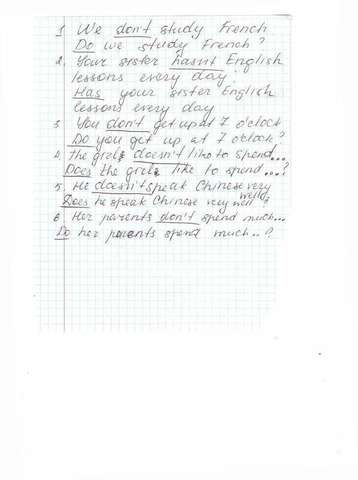 1 We don't study French
Do we study French?
2. Your sister hasn't English
lessons every day.
Has your sister English
lessons every day
3. You don't get up at 7 o'clock
Do you get up at 7 o'clock?
4. The girls doesn't like to spend...
Does the girls like to spend...?
5. He doesn't speak Chinese very
well
Does he speak Chinese very well?
6. Her parents don't spend much...
Do her parents spend much..?